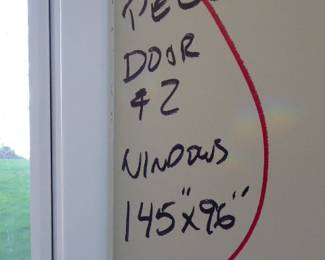 DOOR
#2
WINDOWS
145"x96"